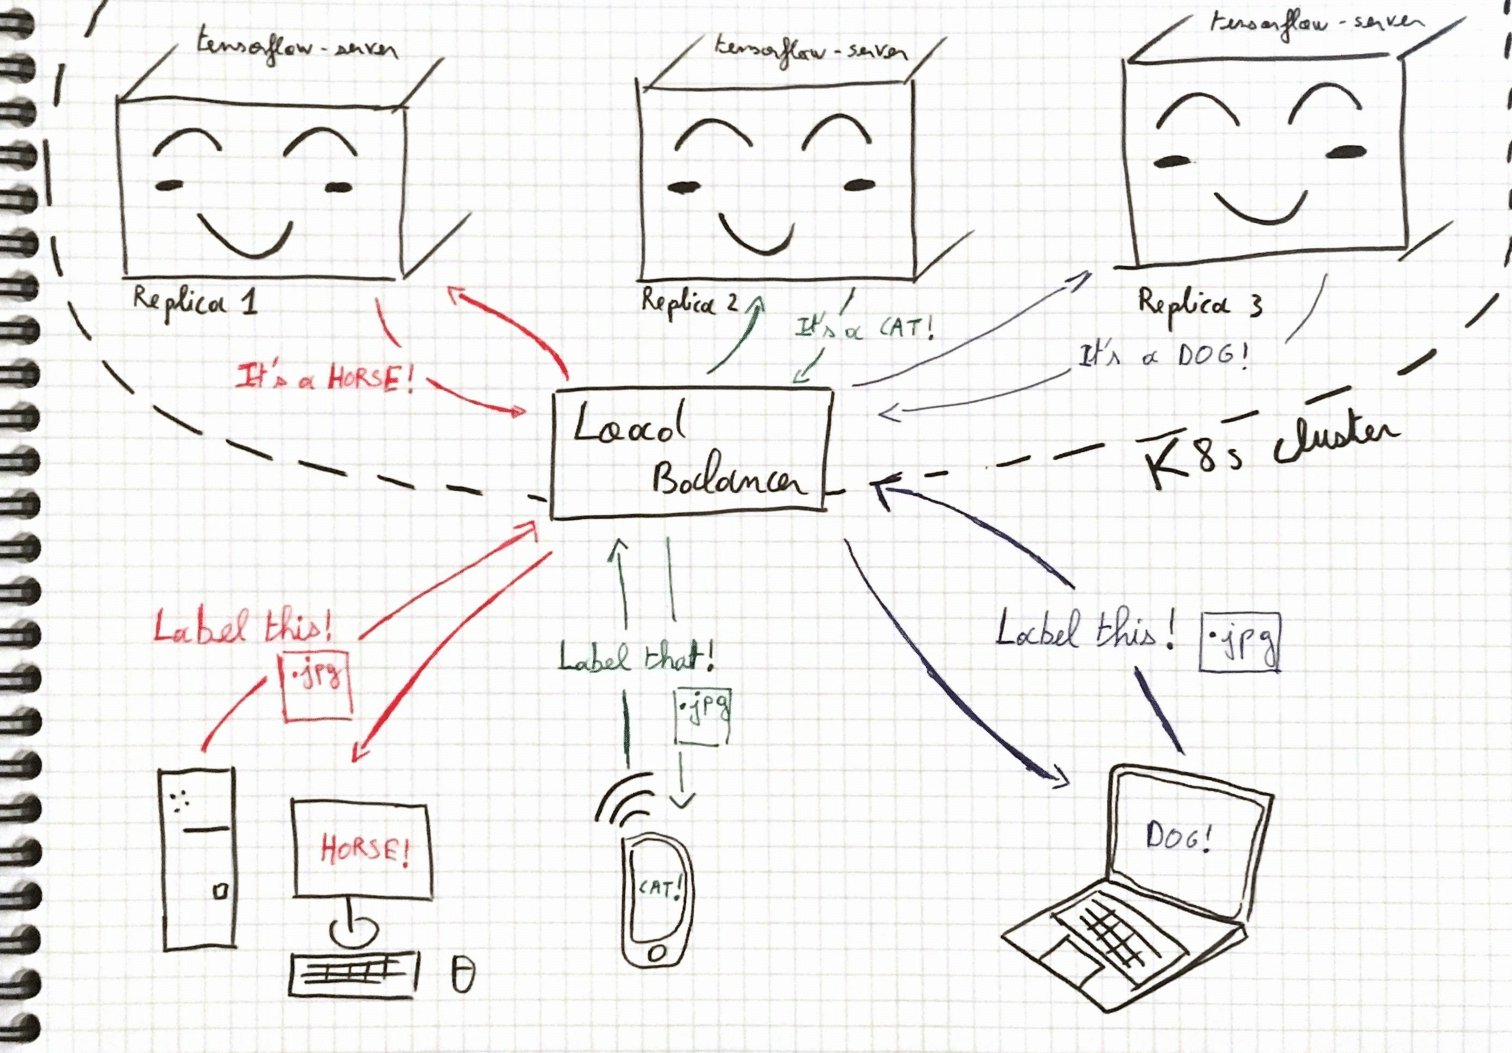 tensorflow-server
tensorflow-server
tensorflow-server
Replica 1
Replica 2
Replica 3
It's a HORSE!
It's a CAT!
It's a DOG!
Load
Balancer
K8s cluster
Label this!
.jpg
Label that!
.jpg
Label this!
.jpg
HORSE!
CAT!
DOG!